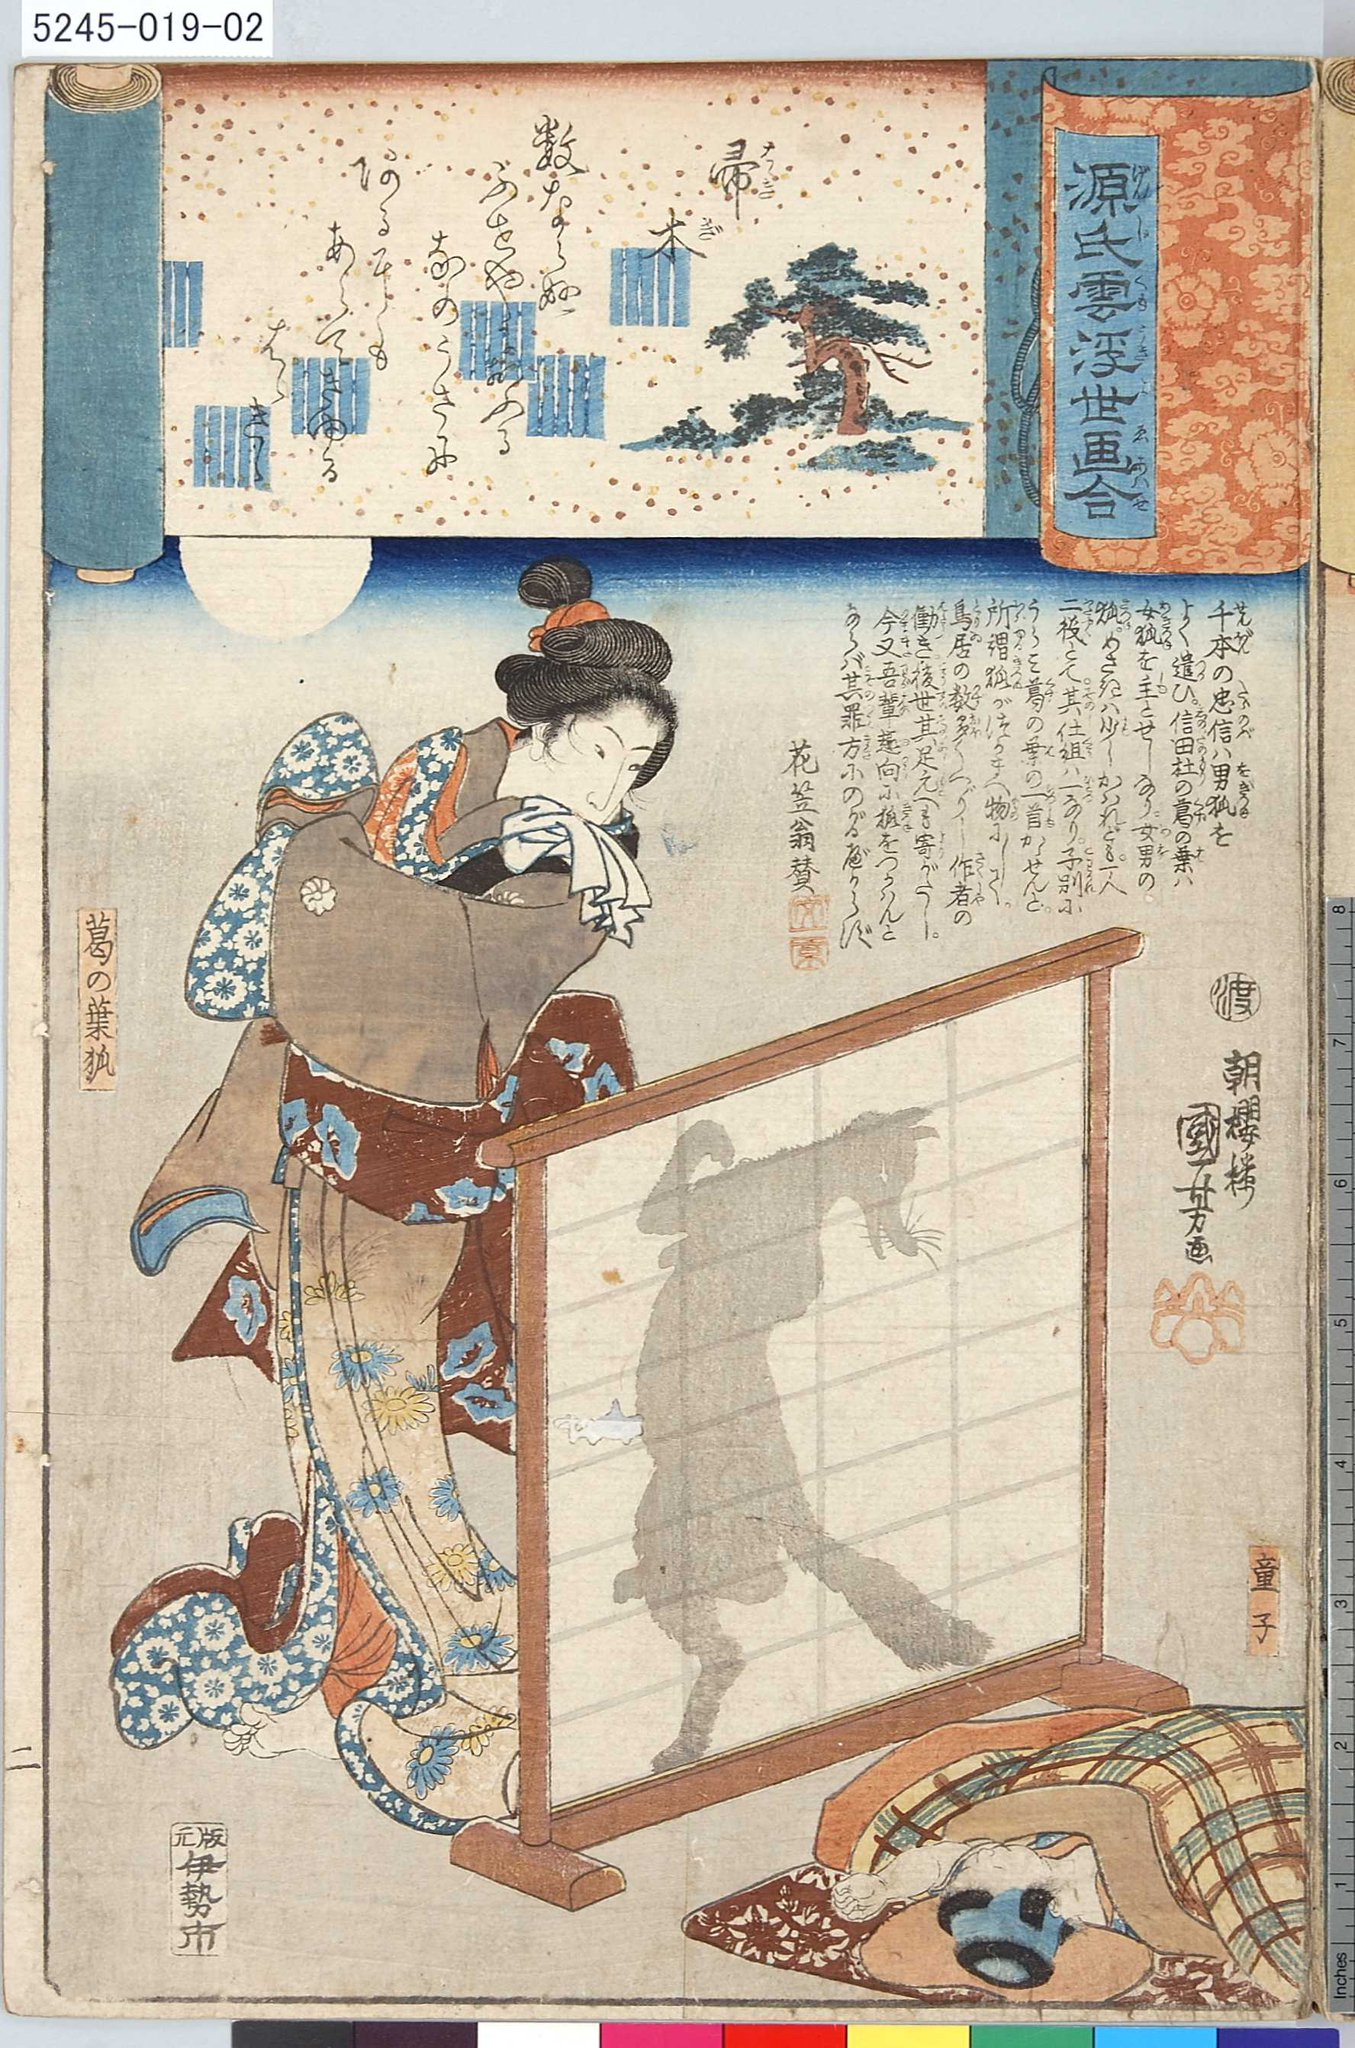 5245-019-02
源氏雲浮世画合
げんじくもうきよゑあはせ
帚木
はゝきぎ
数ならぬ
ふせ屋に
おふる
名のうさに
あるにも
あらできゆる
はゝきゞ
千本の忠信ハ男狐を
よく遣ひ。信田杜の葛の葉ハ
女狐を主とせしなり女男の
狐。めさきハ少しかハれども。一人
二役とて其仕組ハ一なり。予別に
うらミ葛の葉の一首からせんと
所謂狐が
鳥居の数多くへぐりし作者の
働き後世其足元へも寄がたし。
今又吾輩趣向に狐をつりいんと
ならバ其罪方にのがるべからず
花笠翁賛
葛の葉狐
渡
朝櫻楼
國芳画
童子
二
版元
伊勢市
8
7
6
5
4
3
2
1
Inches